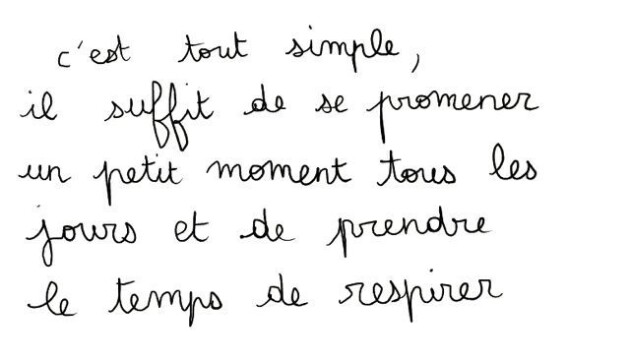 c'est tout simple,
il suffit de se promener
un petit moment tous les
jours et de prendre
le temps de respirer